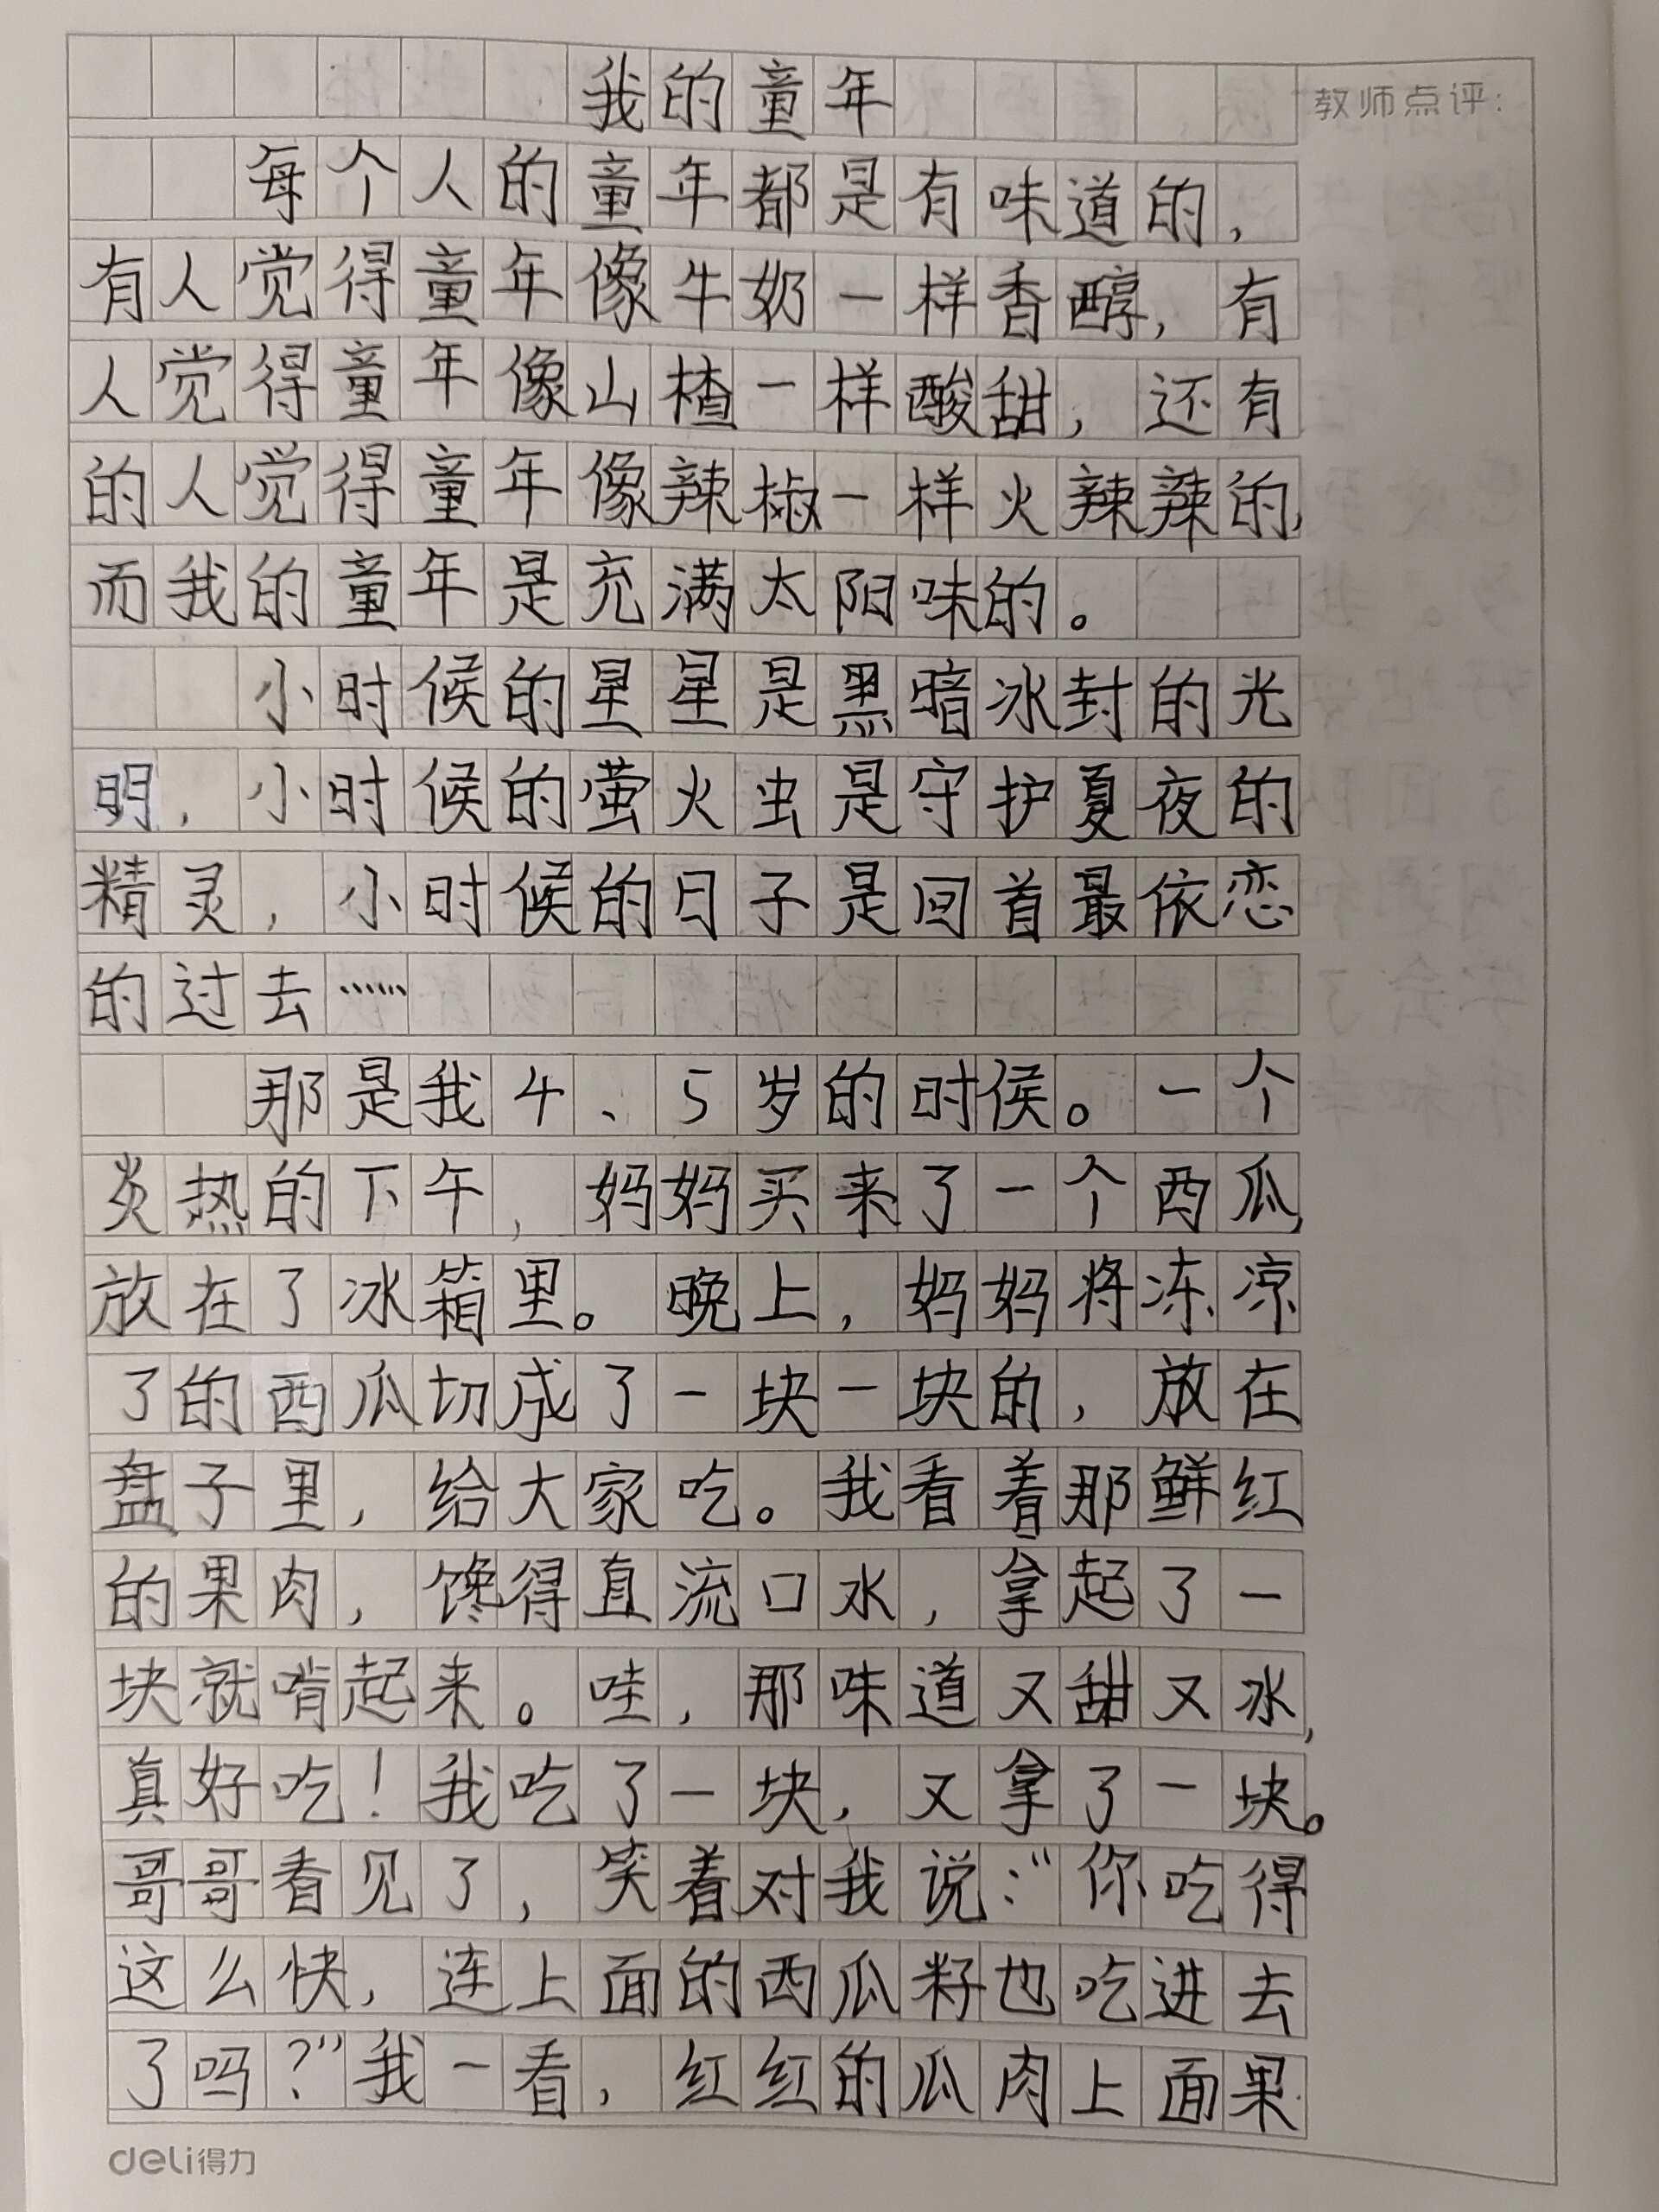 我的童年
教师点评：
每个人的童年都是有味道的，
有人觉得童年像牛奶一样香醇，有
人觉得童年像山楂一样酸甜，还有
的人觉得童年像辣椒一样火辣辣的，
而我的童年是充满太阳味的。
小时候的星星是黑暗冰封的光
明，小时候的萤火虫是守护夏夜的
精灵，小时候的日子是回首最依恋
的过去……
那是我4、5岁的时侯。一个
炎热的下午，妈妈买来了一个西瓜，
放在了冰箱里。晚上，妈妈将冻凉
了的西瓜切成了一块一块的，放在
盘子里，给大家吃。我看着那鲜红
的果肉，馋得直流口水，拿起了一
块就啃起来。哇，那味道又甜又冰，
真好吃！我吃了一块，又拿了一块。
哥哥看见了，笑着对我说：“你吃得
这么快，连上面的西瓜籽也吃进去
了吗？”我一看，红红的瓜肉上面果
deli得力